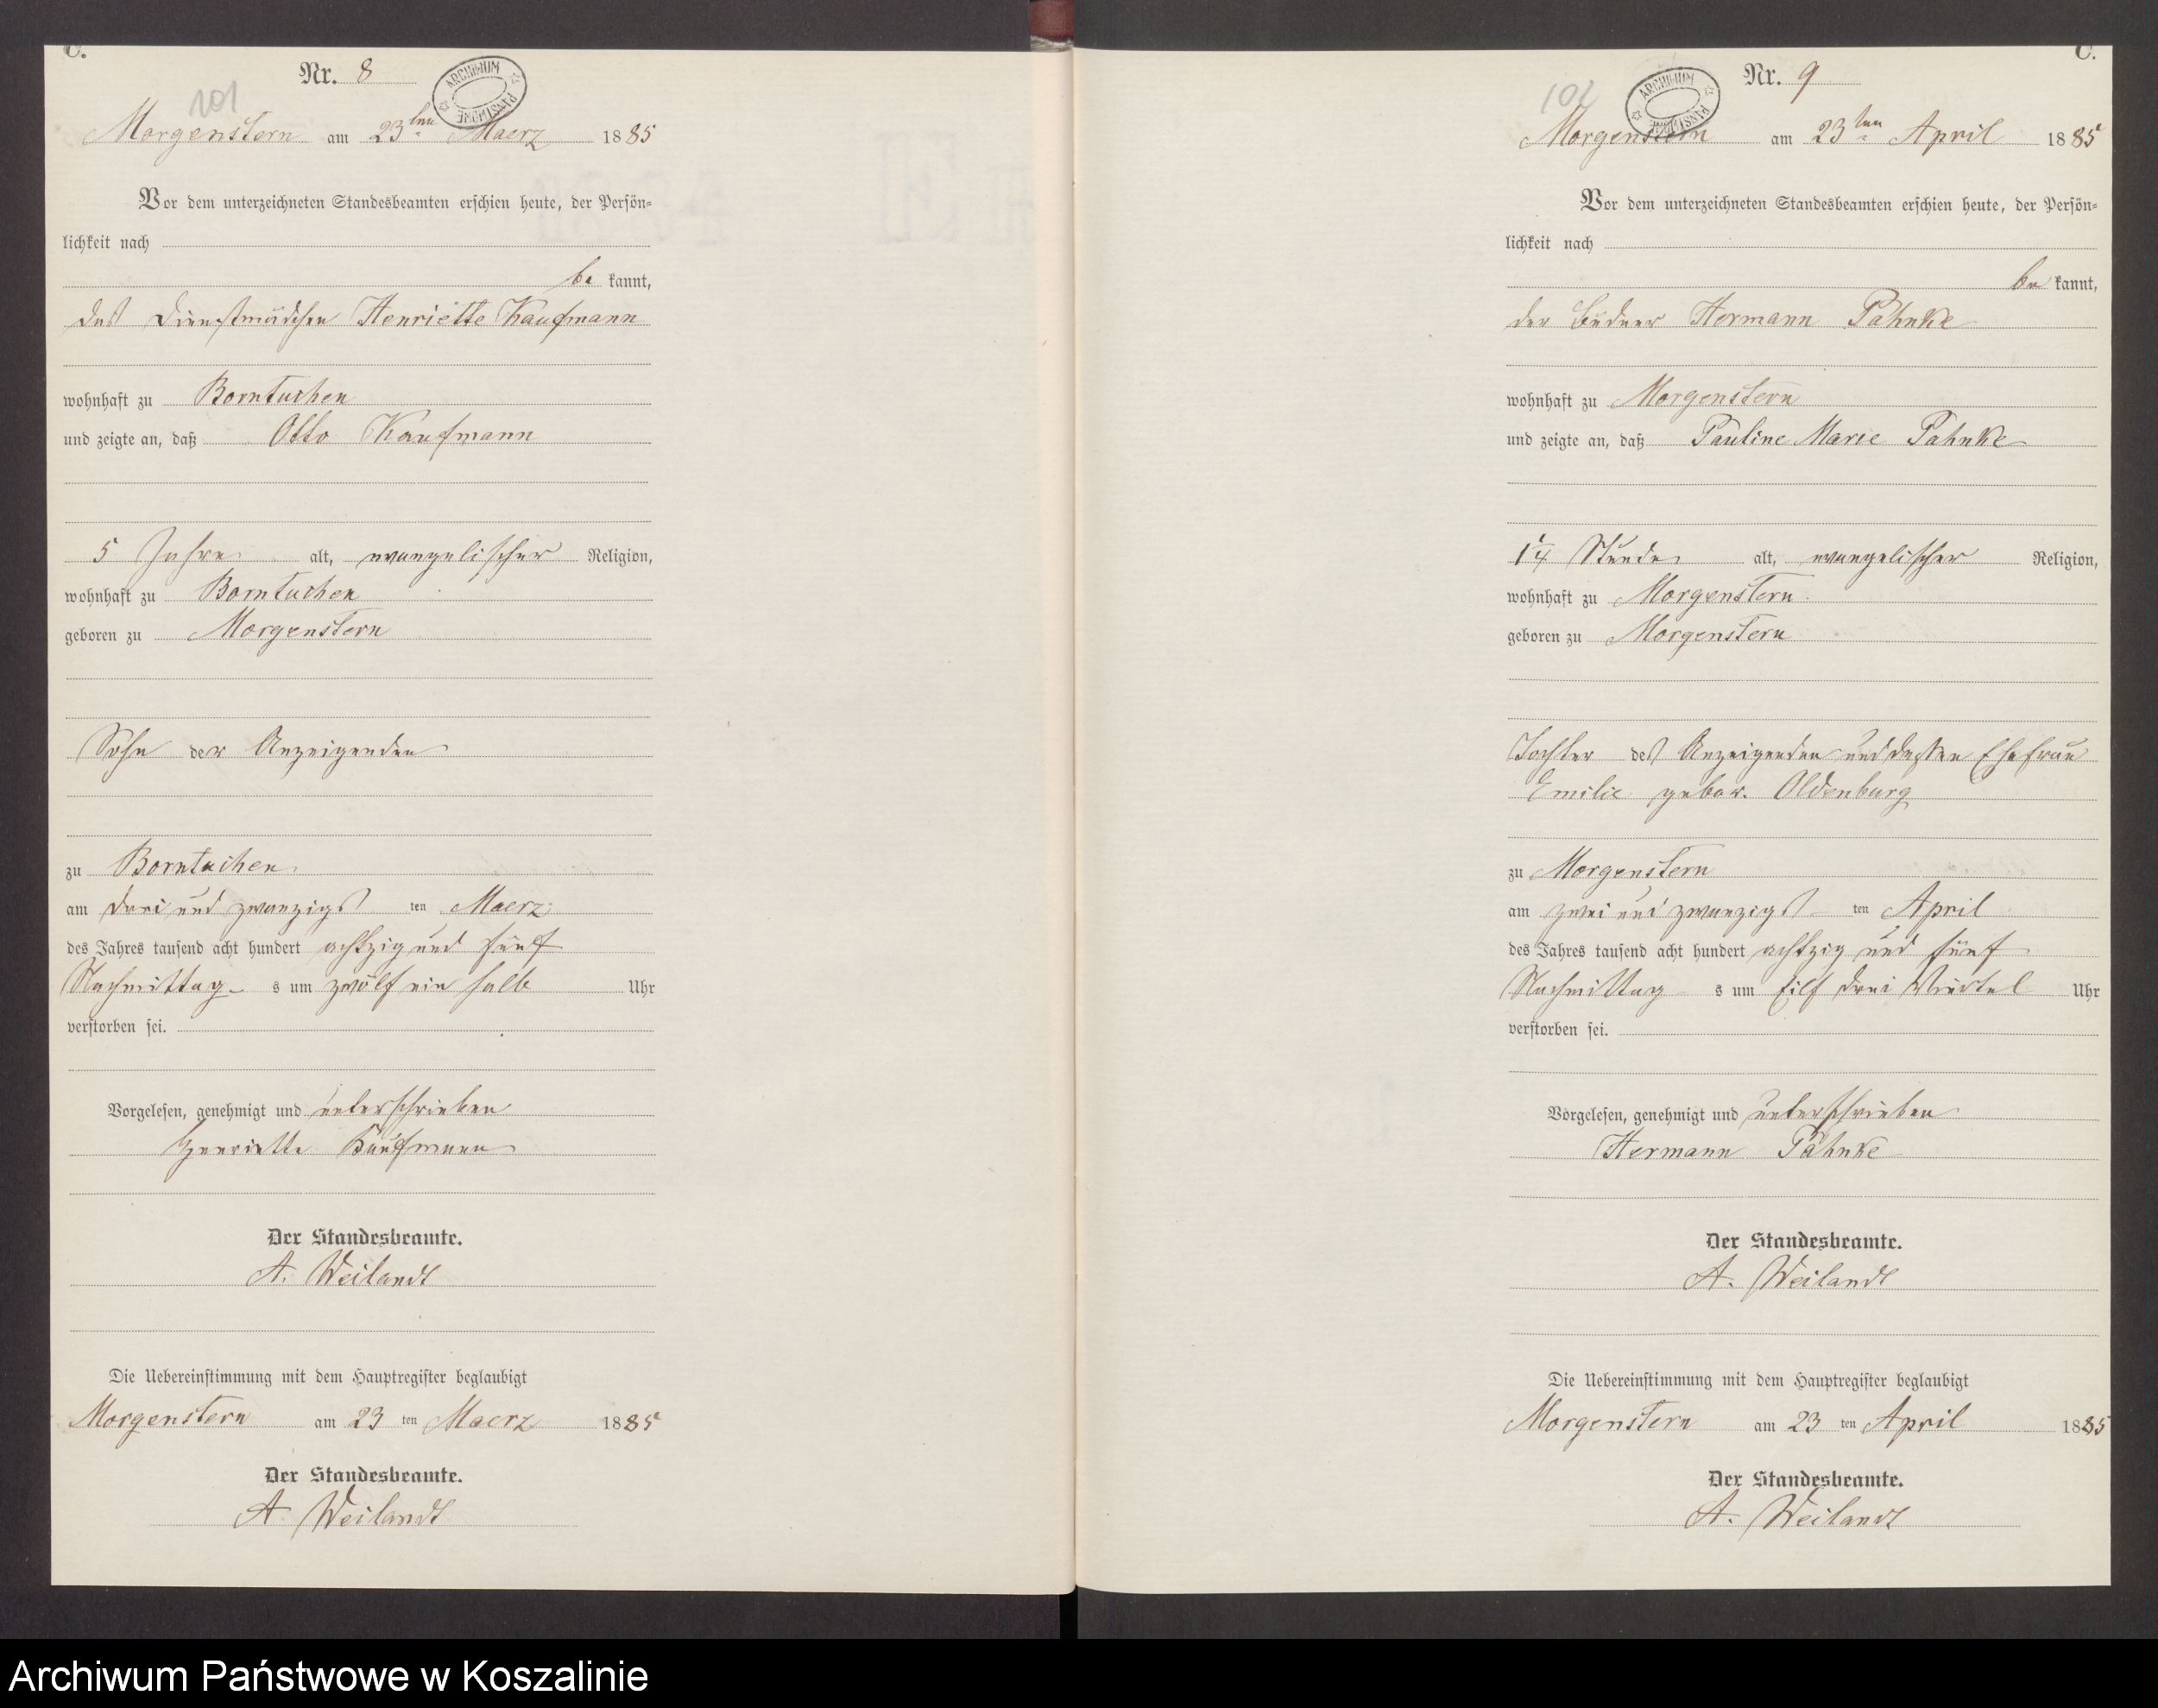 C.
Nr. 8
101
ARCHIWUM PAŃSTWOWE
Morgenstern am 23ten Maerz 1885
Vor dem unterzeichneten Standesbeamten erschien heute, der Persön=
lichkeit nach
be kannt,
das Dienstmädchen Henriette Kaufmann
wohnhaft zu Borntuchen
und zeigte an, daß Otto Kaufmann
5 Jahre alt, evangelischer Religion,
wohnhaft zu Borntuchen
geboren zu Morgenstern
Sohn der Anzeigenden
zu Borntuchen
am drei und zwanzigst ten Maerz
des Jahres tausend acht hundert achtzig und fünf
Nachmittag s um zwölf ein halb Uhr
verstorben sei.
Vorgelesen, genehmigt und unterschrieben
Henriette Kaufmann
Der Standesbeamte.
A. Weilandt
Die Uebereinstimmung mit dem Hauptregister beglaubigt
Morgenstern am 23 ten Maerz 1885
Der Standesbeamte.
A Weilandt
C.
Nr. 9
102
ARCHIWUM PAŃSTWOWE
Morgenstern am 23ten April 1885
Vor dem unterzeichneten Standesbeamten erschien heute, der Persön=
lichkeit nach
be kannt,
der Büdner Hermann Pahnke
wohnhaft zu Morgenstern
und zeigte an, daß Pauline Marie Pahnke
1/4 Stunde alt, evangelischer Religion,
wohnhaft zu Morgenstern
geboren zu Morgenstern
Tochter des Anzeigenden und dessen Ehefrau
Emilie gebor. Oldenburg
zu Morgenstern
am zwei und zwanzigst ten April
des Jahres tausend acht hundert achtzig und fünf
Nachmittag s um Eilf drei Viertel Uhr
verstorben sei.
Vorgelesen, genehmigt und unterschrieben
Hermann Pahnke
Der Standesbeamte.
A. Weilandt
Die Uebereinstimmung mit dem Hauptregister beglaubigt
Morgenstern am 23 ten April 1885
Der Standesbeamte.
A. Weilandt
Archiwum Państwowe w Koszalinie